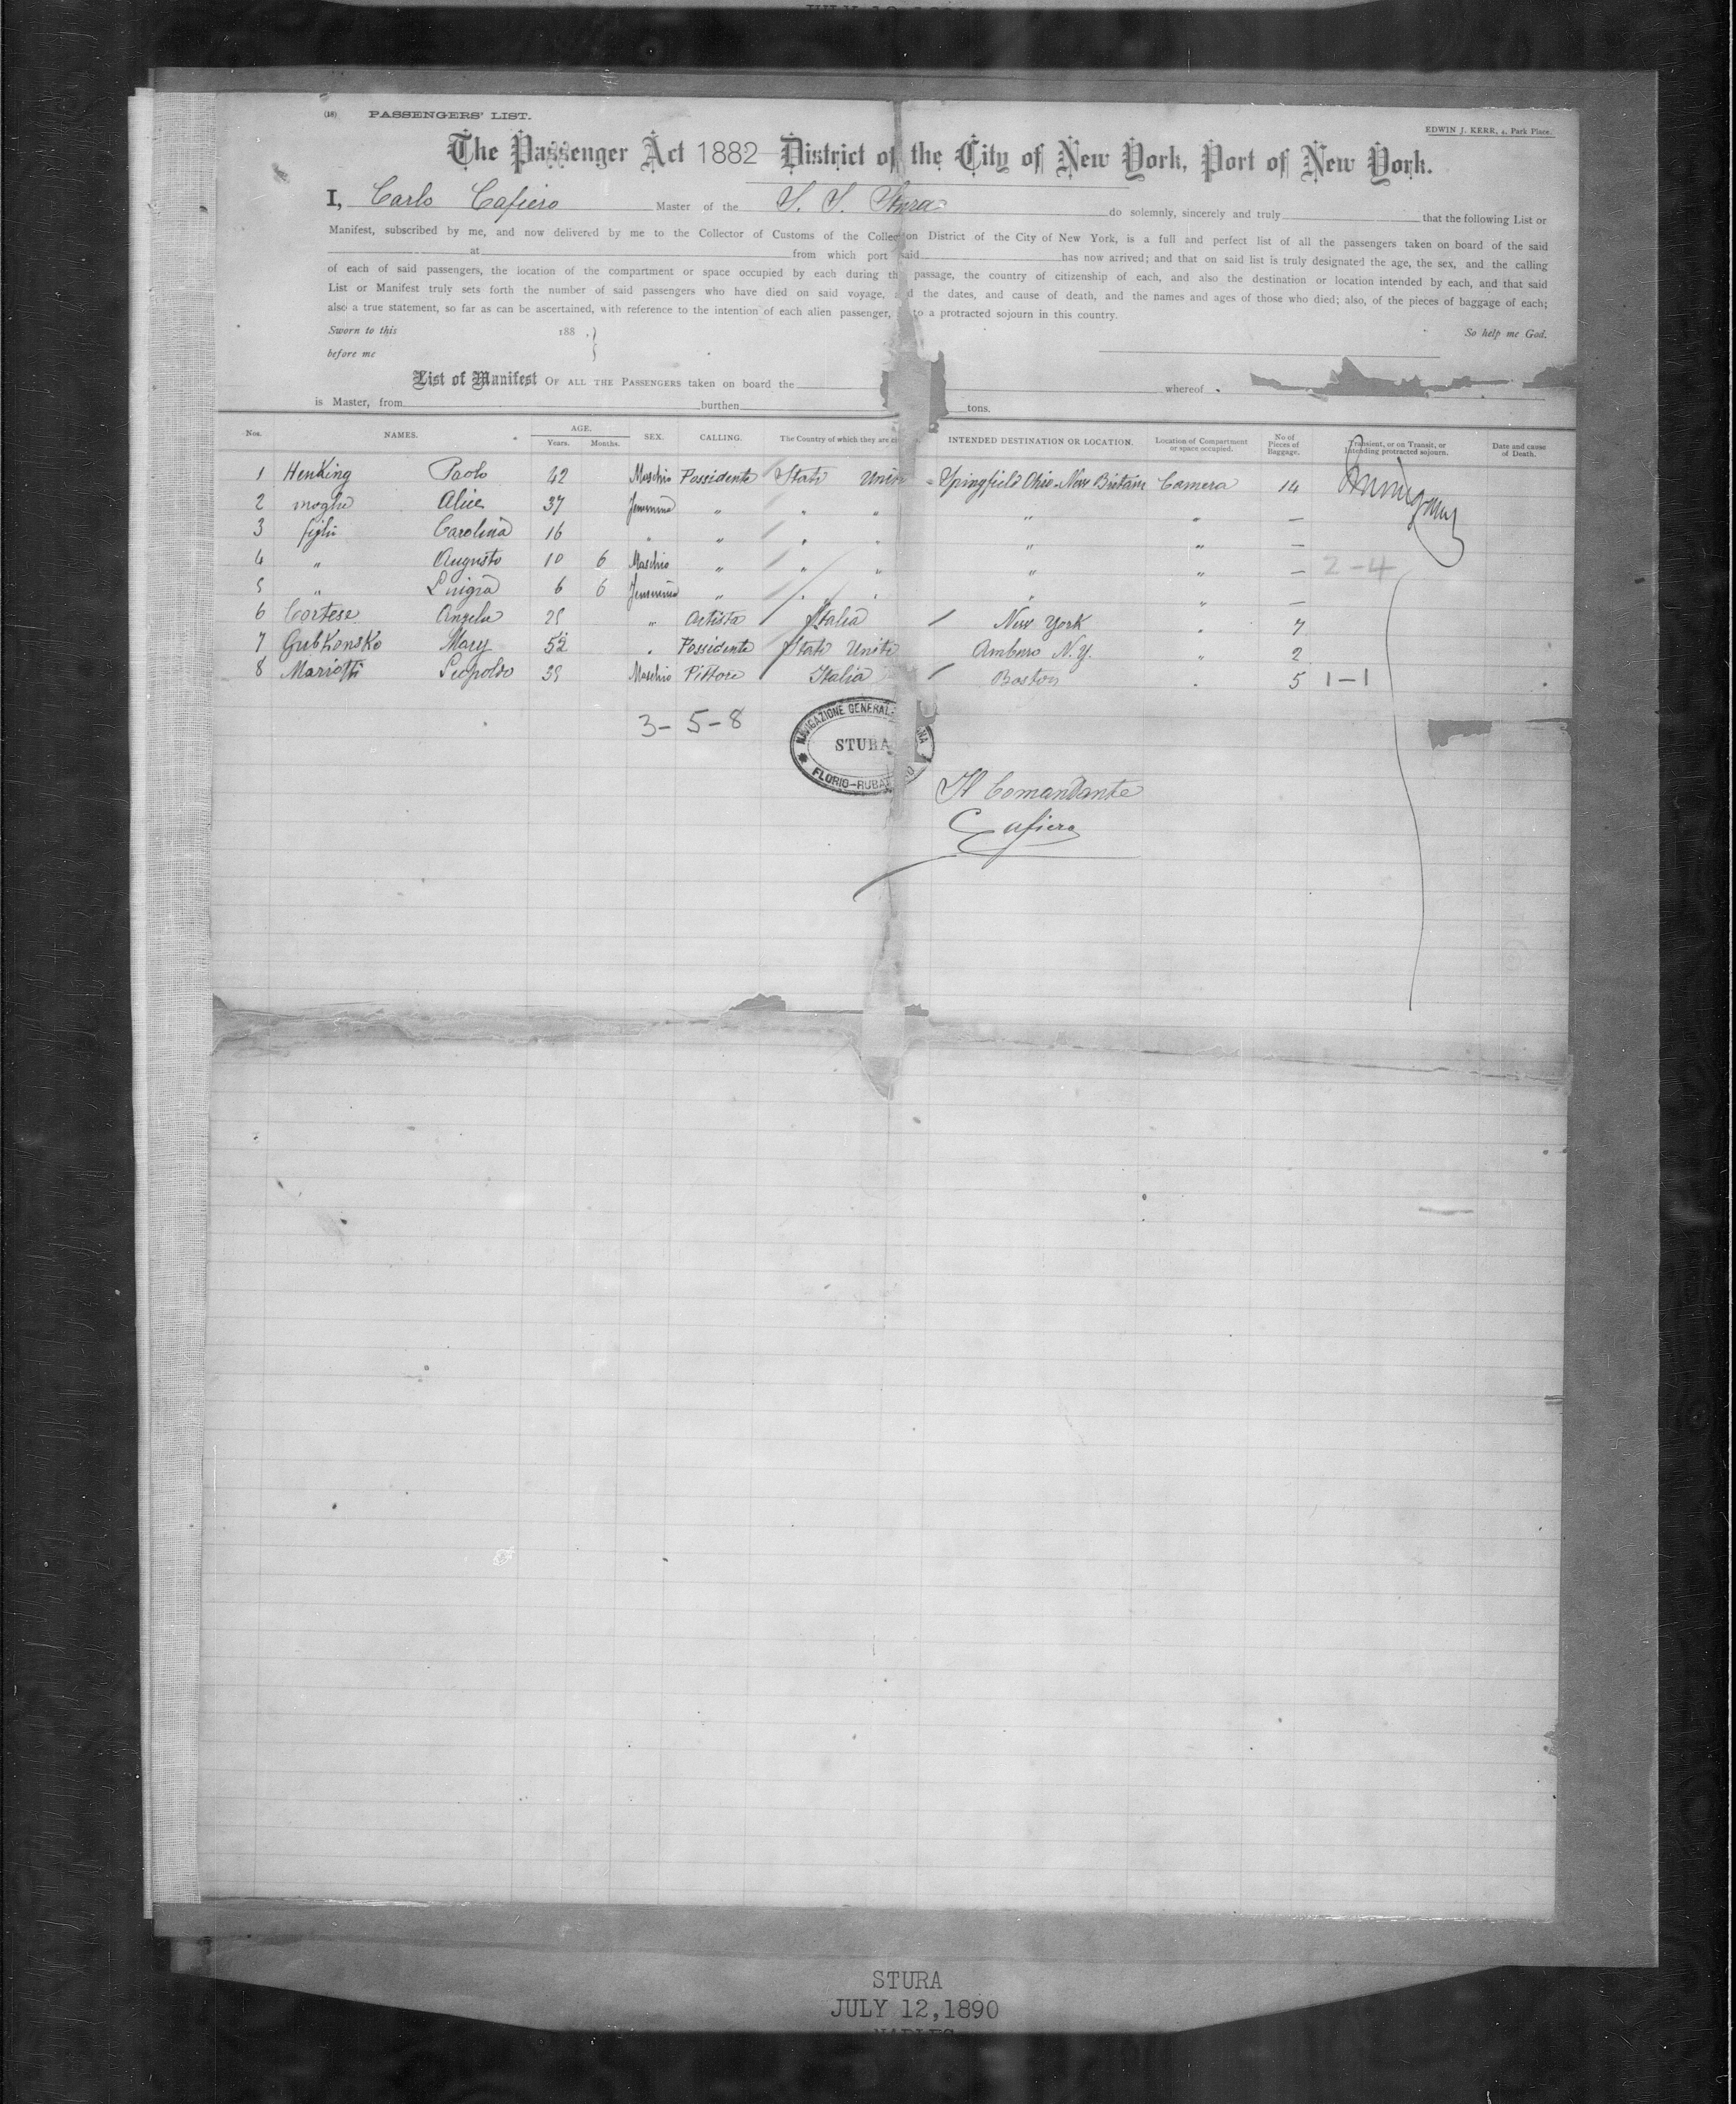 (18) PASSENGERS' LIST.
EDWIN J. KERR, 4, Park Place.
The Passenger Act 1882 District of the City of New York, Port of New York.
I, Carlo Cafiero Master of the S. S. Stura do solemnly, sincerely and truly that the following List or
Manifest, subscribed by me, and now delivered by me to the Collector of Customs of the Collection District of the City of New York, is a full and perfect list of all the passengers taken on board of the said
at from which port said has now arrived; and that on said list is truly designated the age, the sex, and the calling
of each of said passengers, the location of the compartment or space occupied by each during the passage, the country of citizenship of each, and also the destination or location intended by each, and that said
List or Manifest truly sets forth the number of said passengers who have died on said voyage, and the dates, and cause of death, and the names and ages of those who died; also, of the pieces of baggage of each;
also a true statement, so far as can be ascertained, with reference to the intention of each alien passenger, to a protracted sojourn in this country.
Sworn to this 188 . So help me God.
before me
List of Manifest OF ALL THE PASSENGERS taken on board the whereof
is Master, from burthen tons.
Nos. NAMES. AGE. Years. Months. SEX. CALLING. The Country of which they are INTENDED DESTINATION OR LOCATION. Location of Compartment or space occupied. No of Pieces of Baggage. Transient, or on Transit, or Intending protracted sojourn. Date and cause of Death.
1 Henking Paolo 42 Maschio Possidente Stati Uniti Springfield Ohio - New Britain Camera 14
2 moglie Alice 37 Femmina " " " " " —
3 figli Carolina 16 " " " " " " —
4 " Augusto 10 6 Maschio " " " " " — 2-4
5 " Luigia 6 6 Femmina " " " " —
6 Cortese Angela 25 " Artista Italia New York " 7
7 Gubkonsko Mary 52 " Possidente Stati Uniti N.Y. " 2
8 Mariotti Leopoldo 39 Maschio Pittore Italia Boston " 5 1-1
3-5-8
NAVIGAZIONE GENERALE
STURA
FLORIO-RUBATTINO
Il Comandante
Cafiero
STURA
JULY 12,1890
NAPLES